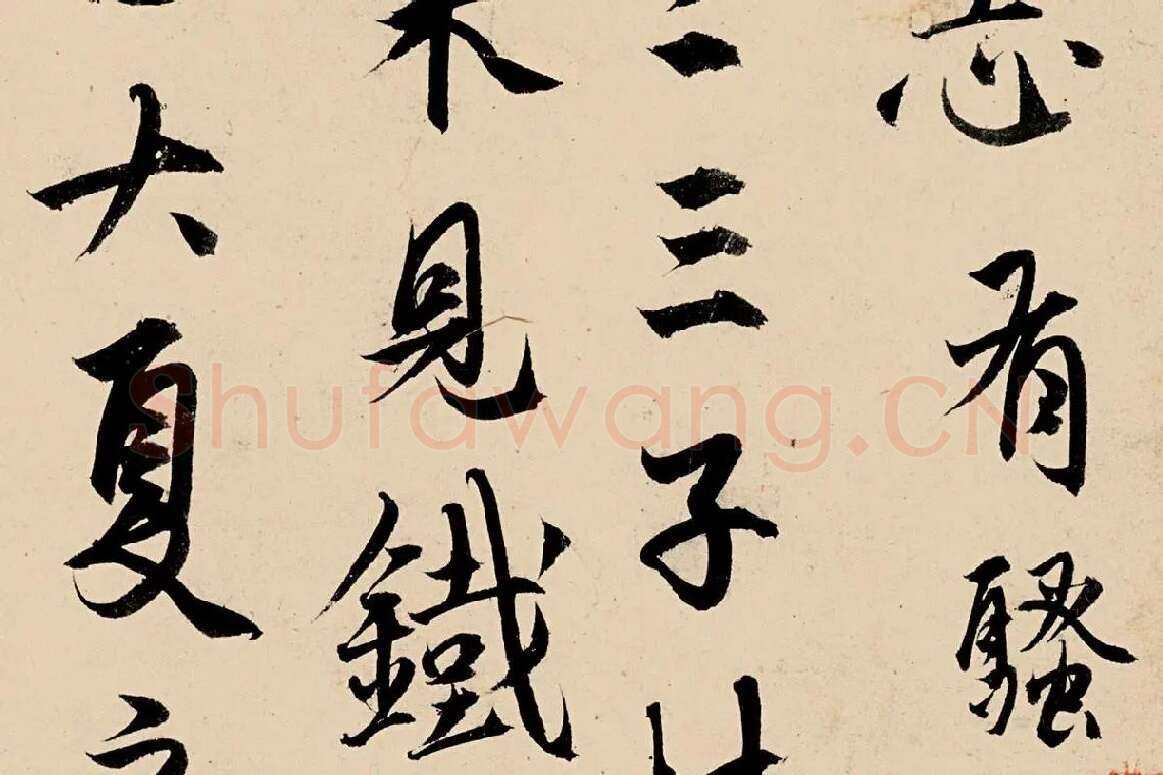 有騷
三子
見鐵
大夏
Shufawang.CN